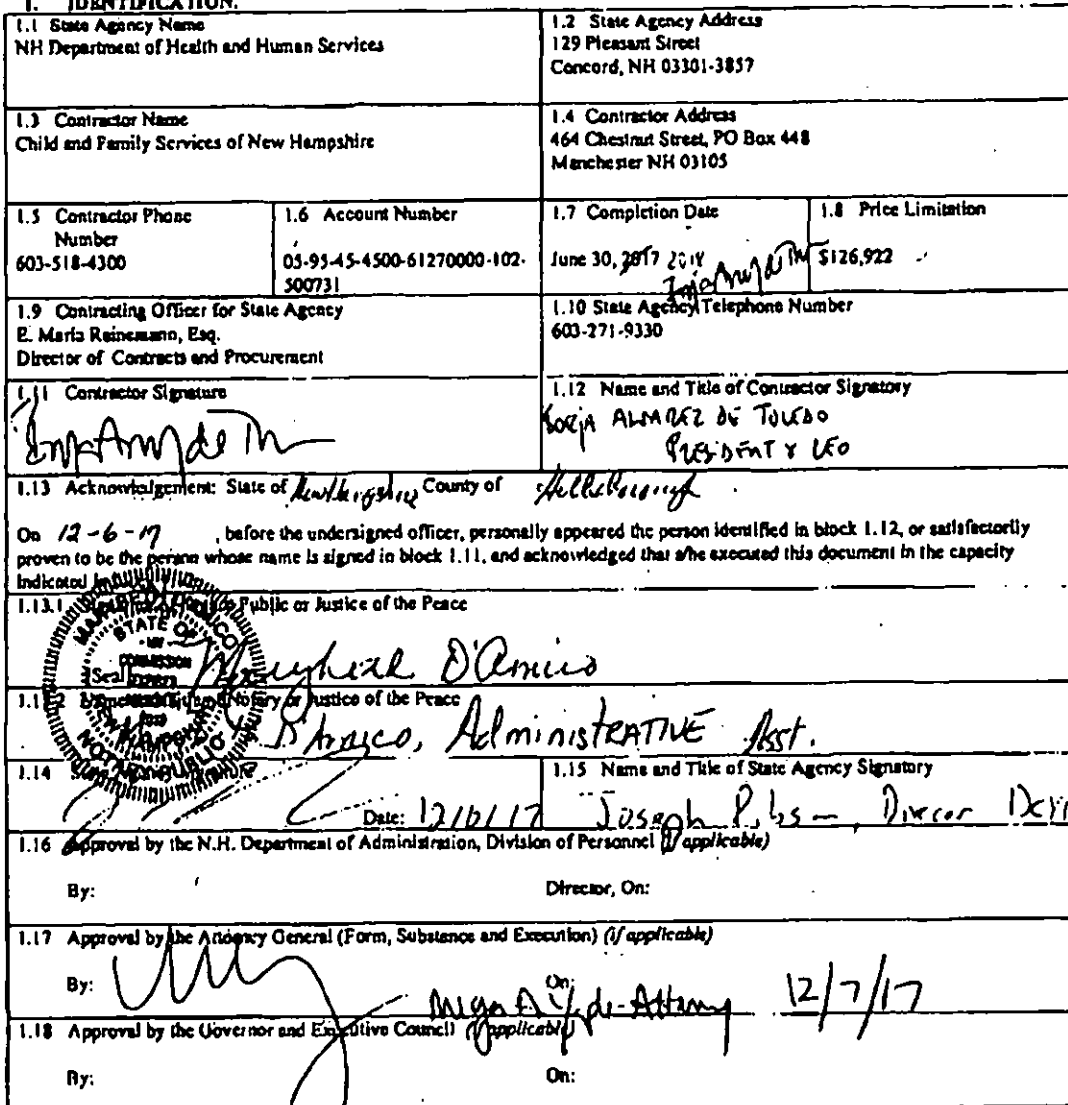 1. IDENTIFICATION.
1.1 State Agency Name
NH Department of Health and Human Services
1.2 State Agency Address
129 Pleasant Street
Concord, NH 03301-3857
1.3 Contractor Name
Child and Family Services of New Hampshire
1.4 Contractor Address
464 Chestnut Street, PO Box 448
Manchester NH 03105
1.5 Contractor Phone
Number
603-518-4300
1.6 Account Number
05-95-45-4500-61270000-102-
500731
1.7 Completion Date
June 30, 2017 2018
1.8 Price Limitation
$126,922
1.9 Contracting Officer for State Agency
E. Maria Reinemann, Esq.
Director of Contracts and Procurement
1.10 State Agency Telephone Number
603-271-9330
1.11 Contractor Signature
1.12 Name and Title of Contractor Signatory
BORJA ALVAREZ DE TOLEDO
PRESIDENT & CEO
1.13 Acknowledgement: State of New Hampshire County of Hillsborough
On 12-6-17 , before the undersigned officer, personally appeared the person identified in block 1.12, or satisfactorily
proven to be the person whose name is signed in block 1.11, and acknowledged that s/he executed this document in the capacity
indicated
1.13.1 Public or Justice of the Peace
STATE OF
COMMISSION
EXPIRES
[Seal]
NEW HAMPSHIRE
NOTARY PUBLIC
D'Amico
Notary or Justice of the Peace
D'Amico, Administrative Asst.
1.14
Date: 12/6/17
1.15 Name and Title of State Agency Signatory
Joseph Director
1.16 Approval by the N.H. Department of Administration, Division of Personnel (if applicable)
By: Director, On:
1.17 Approval by the Attorney General (Form, Substance and Execution) (if applicable)
By: On: 12/7/17
1.18 Approval by the Governor and Executive Council (if applicable)
By: On: